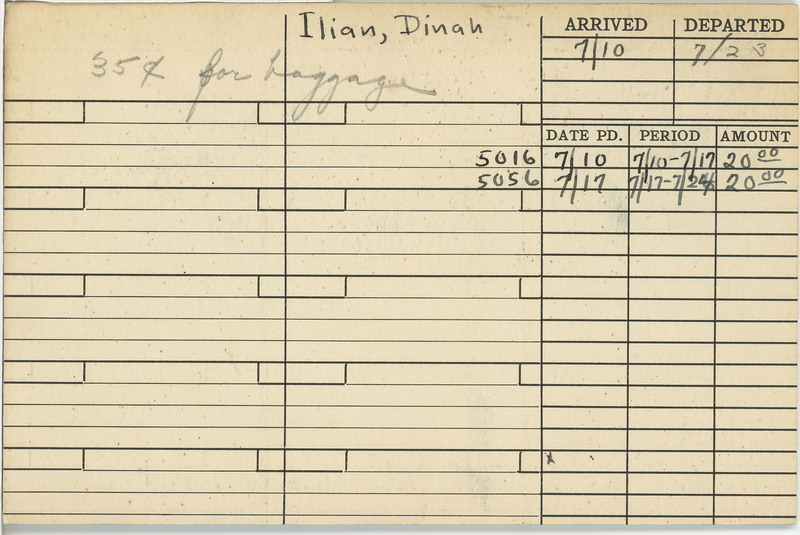 Ilian, Dinah
ARRIVED DEPARTED
7/10 7/23
35¢ for baggage
DATE PD. PERIOD AMOUNT
5016 7/10 7/10-7/17 20 00
5056 7/17 7/17-7/24 20 00